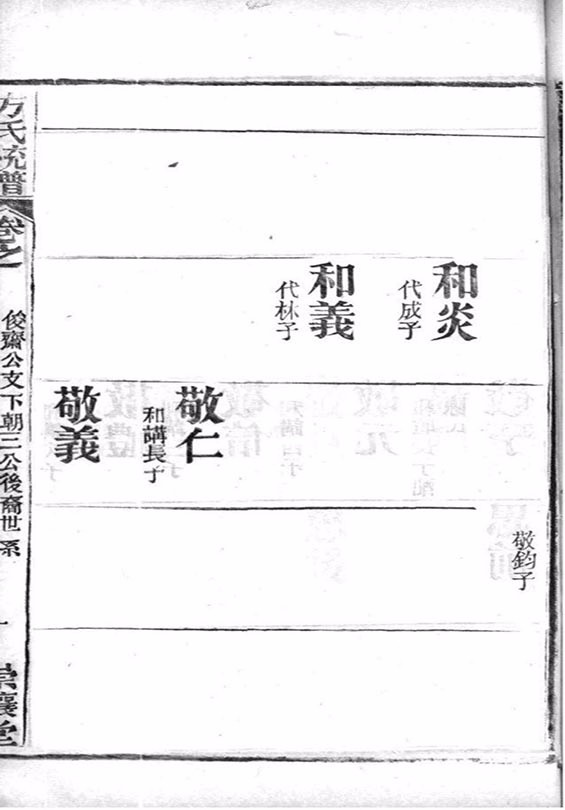 和炎
代成子
和義
代林子
敬仁
和講長子
敬義
敬鈞子
方氏統譜
卷之
俊齋公文下朝三公後裔世系
崇讓堂